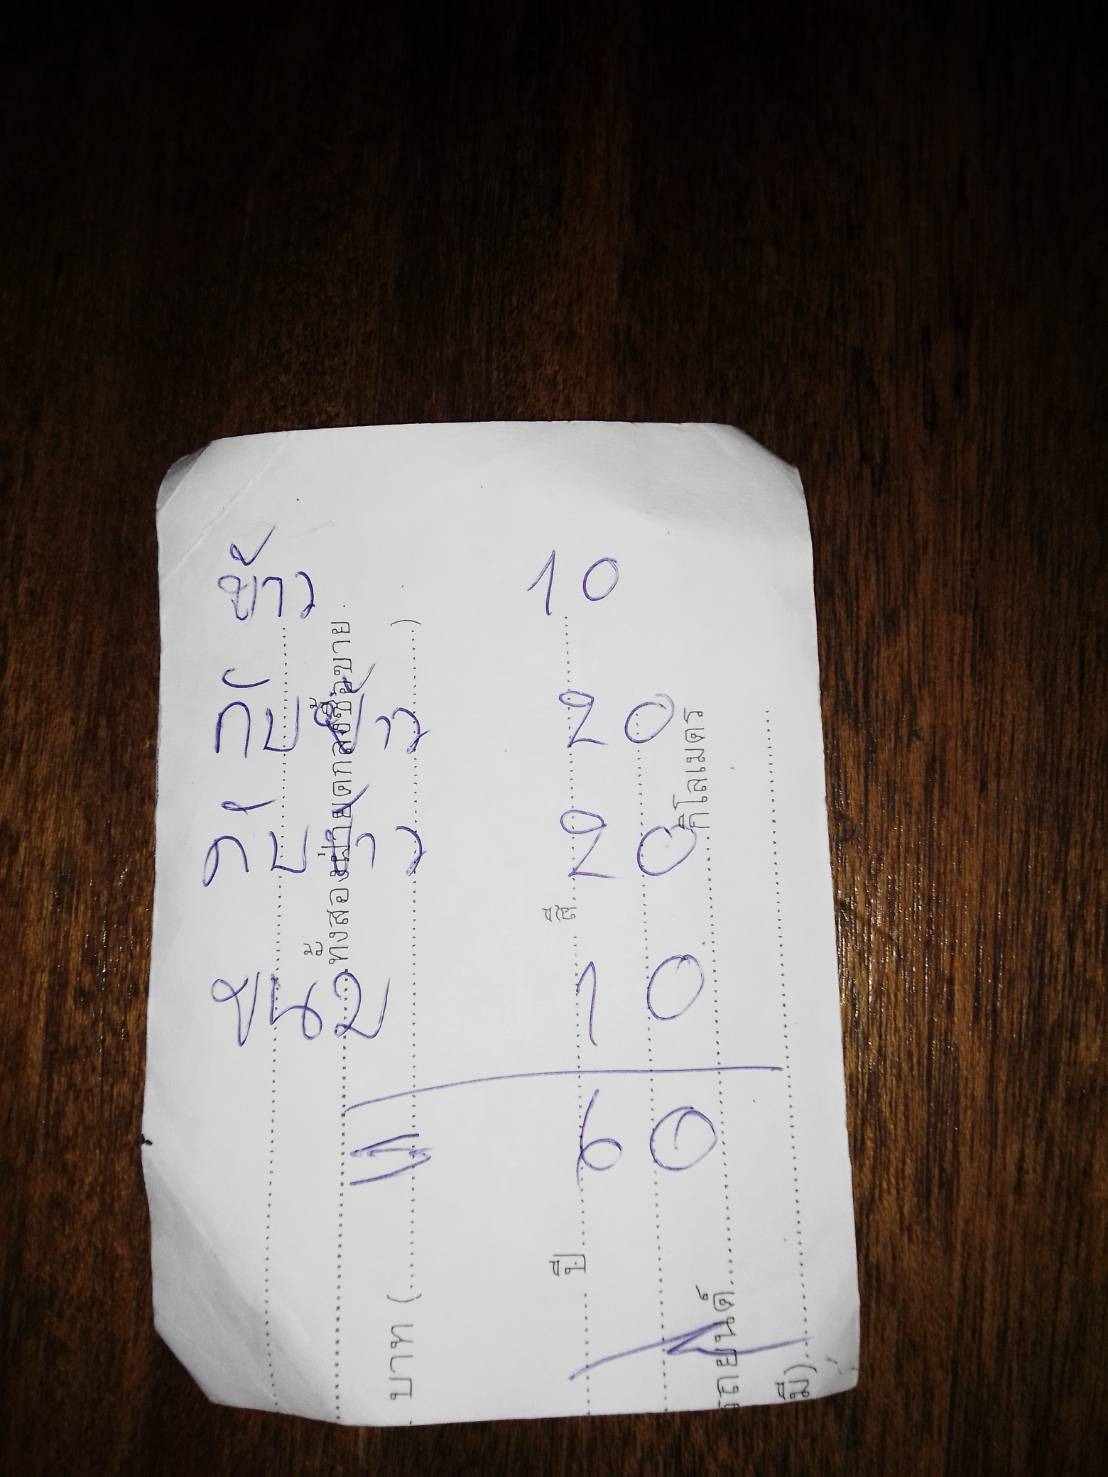 ข้าว 10
กับข้าว 20
กับข้าว 20
ขนม 10
60
ทั้งสองฝ่ายตกลงซื้อขาย
บาท (..........)
ปี.......... สี..........
กิโลเมตร
รถยนต์..........
มี)..........